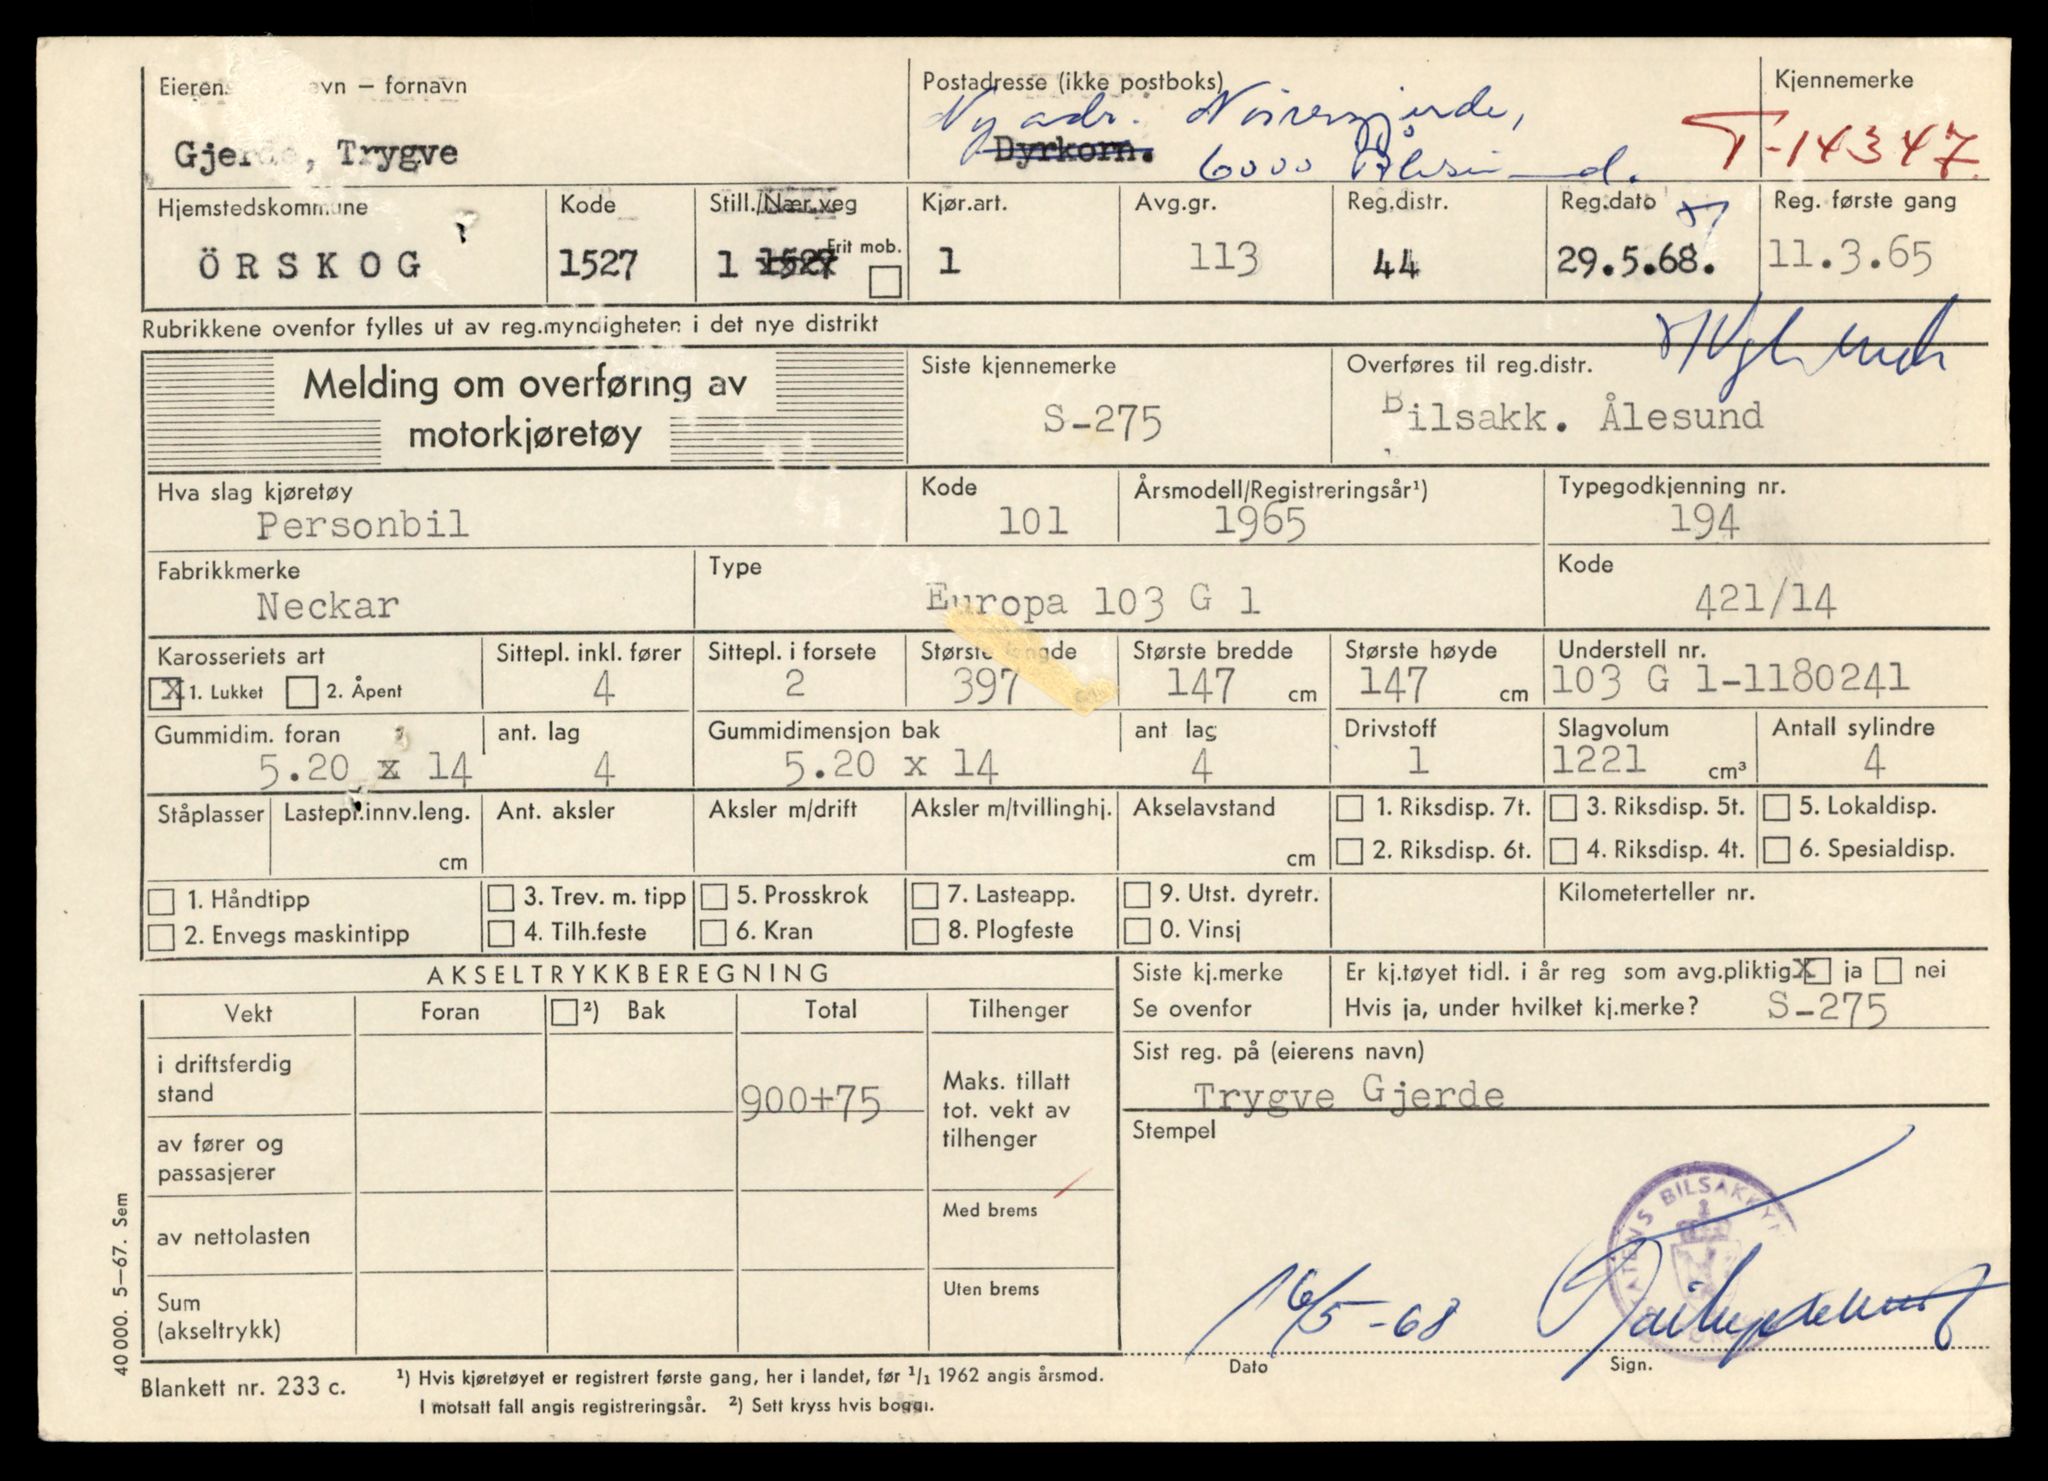 Eierens navn – fornavn
Gjerde, Trygve
Postadresse (ikke postboks)
Ny adr.
Dyrkorn.
6000 Ålesund.
Kjennemerke
T-14347.
Hjemstedskommune
ÖRSKOG
Kode
1527
Still./Nær.veg
1 1527
Frit mob.
Kjør.art.
1
Avg.gr.
113
Reg.distr.
44
Reg.dato
29.5.68.
Reg. første gang
11.3.65
Rubrikkene ovenfor fylles ut av reg.myndigheten i det nye distrikt
Melding om overføring av
motorkjøretøy
Siste kjennemerke
S-275
Overføres til reg.distr.
Bilsakk. Ålesund
Hva slag kjøretøy
Personbil
Kode
101
Årsmodell/Registreringsår¹)
1965
Typegodkjenning nr.
194
Fabrikkmerke
Neckar
Type
Europa 103 G 1
Kode
421/14
Karosseriets art
X 1. Lukket 2. Åpent
Sittepl. inkl. fører
4
Sittepl. i forsete
2
Største lengde
397 cm
Største bredde
147 cm
Største høyde
147 cm
Understell nr.
103 G 1-1180241
Gummidim. foran
5.20 x 14
ant. lag
4
Gummidimensjon bak
5.20 x 14
ant lag
4
Drivstoff
1
Slagvolum
1221 cm³
Antall sylindre
4
Ståplasser
Lastepl.innv.leng.
cm
Ant. aksler
Aksler m/drift
Aksler m/tvillinghj.
Akselavstand
cm
1. Riksdisp. 7t. 3. Riksdisp. 5t. 5. Lokaldisp.
2. Riksdisp. 6t. 4. Riksdisp. 4t. 6. Spesialdisp.
1. Håndtipp 3. Trev. m. tipp 5. Prosskrok 7. Lasteapp. 9. Utst. dyretr.
2. Envegs maskintipp 4. Tilh.feste 6. Kran 8. Plogfeste 0. Vinsj
Kilometerteller nr.
AKSELTRYKKBEREGNING
Vekt Foran ²) Bak Total Tilhenger
i driftsferdig
stand
900+75
Maks. tillatt
tot. vekt av
tilhenger
av fører og
passasjerer
av nettolasten
Med brems
Sum
(akseltrykk)
Uten brems
Siste kj.merke
Se ovenfor
Er kj.tøyet tidl. i år reg som avg.pliktig X ja nei
Hvis ja, under hvilket kj.merke? S-275
Sist reg. på (eierens navn)
Trygve Gjerde
Stempel
BILSAKKY
16/5-68
Dato
Sign.
40 000. 5–67. Sem
Blankett nr. 233 c.
¹) Hvis kjøretøyet er registrert første gang, her i landet, før 1/1 1962 angis årsmod.
I motsatt fall angis registreringsår. ²) Sett kryss hvis boggi.